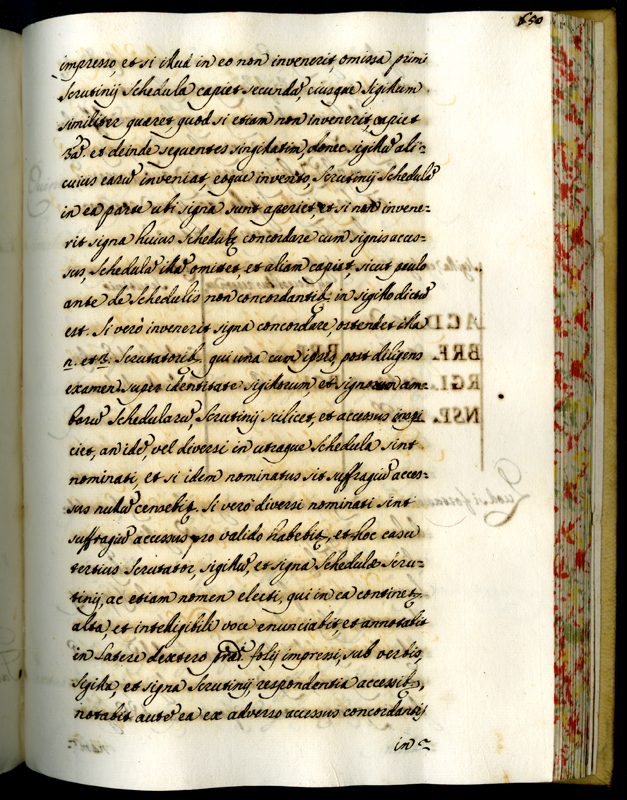 650
impresso et si illud in eo non invenerit omissa primi
scrutinij schedula capiet secundã, ejusque sigillum
similiter quæret quod si etiam non invenerit, capiet
3ã. et deinde sequentes singillatim, donec sigillũ ali-
cuius earũ inveniat, eoque invento, scrutinij schedulã
in ea parte ubi signa sunt aperiet, et si non inve-
rit signa huius schedulæ concordare cum signis acces-
sus, schedulã illã omittet et aliam capiet sicut paulo
ante de schedulis non concordantib, in sigillo dictũ
est. Si verò invenerit signa concordare, ostendet illa
p.º et 2.º scrutatorib, qui una cum ipso, post diligens
examen super identitate sigillorum, et signorum am-
barũ schedularũ, scrutinij scilicet, et accessus inspi-
ciet, an idẽ, vel diversi in utraque schedula sint
nominati, et si idem nominatus sit suffragiũ acces-
sus nullũ censebit. Si verò diversi nominati sint
suffragiũ accessus pro valido habebit, et hoc casu
tertius scrutator, sigillũ, et signa schedulæ scru-
tinij, ac etiam nomen electi, qui in ea continet,
alta, et intelligibili voce enunciabit, et annotabit
in latere dextero præd. folij impressi, sub verbis,
sigilla, et signa scrutinij respondentia accessib,
notabit autẽ ea ex adverso accessus concordantis
in